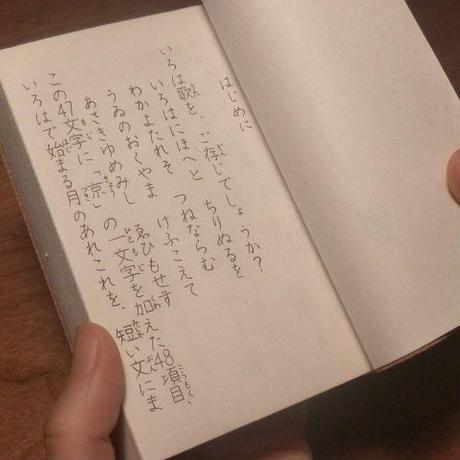 はじめに
いろは歌を、ご存じでしょうか?
いろはにほへと ちりぬるを
わかよたれそ つねならむ
うゐのおくやま けふこえて
あさきゆめみし ゑひもせす
この47文字に「京」の一文字を加えた48項目、
いろはで始まる月のあれこれを、短い文にま